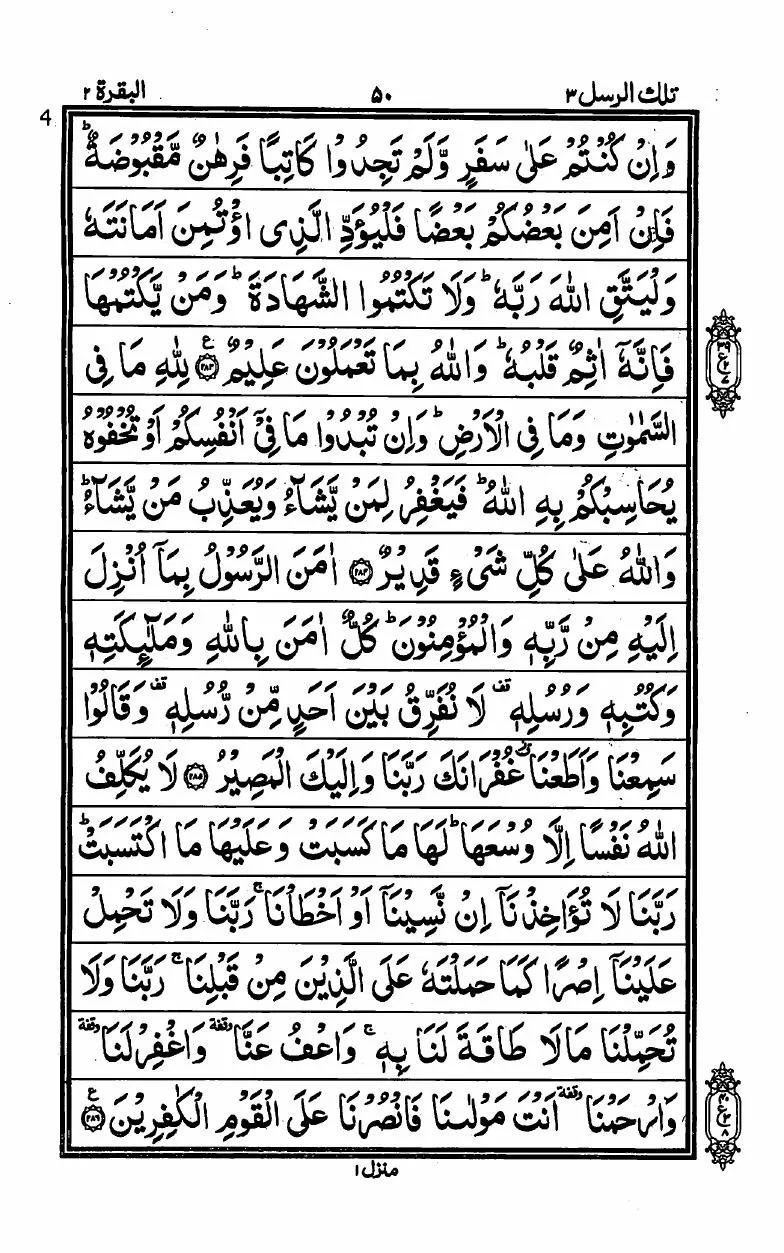 تلك الرسل ٣ ٥٠ البقرة ٢
4
وَاِنْ كُنْتُمْ عَلٰى سَفَرٍ وَّلَمْ تَجِدُوْا كَاتِبًا فَرِهٰنٌ مَّقْبُوْضَةٌ ؕ
فَاِنْ اَمِنَ بَعْضُكُمْ بَعْضًا فَلْيُؤَدِّ الَّذِى اؤْتُمِنَ اَمَانَتَهٗ
وَلْيَتَّقِ اللّٰهَ رَبَّهٗ ؕ وَلَا تَكْتُمُوا الشَّهَادَةَ ؕ وَمَنْ يَّكْتُمْهَا
فَاِنَّهٗۤ اٰثِمٌ قَلْبُهٗ ؕ وَاللّٰهُ بِمَا تَعْمَلُوْنَ عَلِيْمٌ ﴿٢٨٣﴾ ع لِلّٰهِ مَا فِى
السَّمٰوٰتِ وَمَا فِى الْاَرْضِ ؕ وَاِنْ تُبْدُوْا مَا فِىْۤ اَنْفُسِكُمْ اَوْ تُخْفُوْهُ
يُحَاسِبْكُمْ بِهِ اللّٰهُ ؕ فَيَغْفِرُ لِمَنْ يَّشَآءُ وَيُعَذِّبُ مَنْ يَّشَآءُ ؕ
وَاللّٰهُ عَلٰى كُلِّ شَىْءٍ قَدِيْرٌ ﴿٢٨٤﴾ اٰمَنَ الرَّسُوْلُ بِمَاۤ اُنْزِلَ
اِلَيْهِ مِنْ رَّبِّهٖ وَالْمُؤْمِنُوْنَ ؕ كُلٌّ اٰمَنَ بِاللّٰهِ وَمَلٰٓئِكَتِهٖ
وَكُتُبِهٖ وَرُسُلِهٖ قف لَا نُفَرِّقُ بَيْنَ اَحَدٍ مِّنْ رُّسُلِهٖ قف وَقَالُوْا
سَمِعْنَا وَاَطَعْنَا غُفْرَانَكَ رَبَّنَا وَاِلَيْكَ الْمَصِيْرُ ﴿٢٨٥﴾ لَا يُكَلِّفُ
اللّٰهُ نَفْسًا اِلَّا وُسْعَهَا ؕ لَهَا مَا كَسَبَتْ وَعَلَيْهَا مَا اكْتَسَبَتْ ؕ
رَبَّنَا لَا تُؤَاخِذْنَاۤ اِنْ نَّسِيْنَاۤ اَوْ اَخْطَاْنَا ۚ رَبَّنَا وَلَا تَحْمِلْ
عَلَيْنَاۤ اِصْرًا كَمَا حَمَلْتَهٗ عَلَى الَّذِيْنَ مِنْ قَبْلِنَا ۚ رَبَّنَا وَلَا
تُحَمِّلْنَا مَا لَا طَاقَةَ لَنَا بِهٖ ۚ وَاعْفُ عَنَّا وقفة وَاغْفِرْ لَنَا وقفة
وَارْحَمْنَا وقفة اَنْتَ مَوْلٰىنَا فَانْصُرْنَا عَلَى الْقَوْمِ الْكٰفِرِيْنَ ﴿٢٨٦﴾ ع
منزل ١